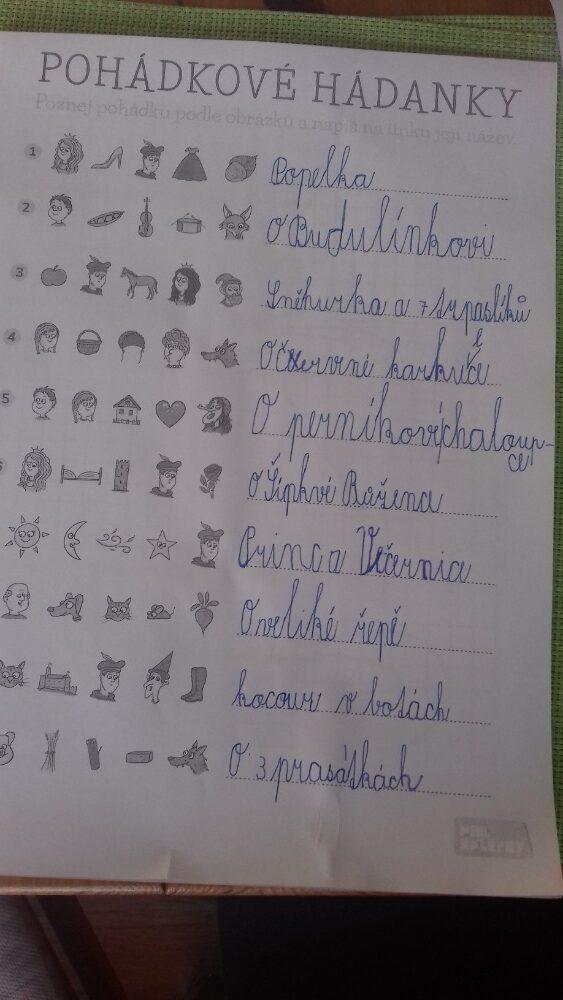 POHÁDKOVÉ HÁDANKY
Poznej pohádku podle obrázků a napiš na linku její název.
1 Popelka
2 O Budulínkovi
3 Sněhurka a 7 trpaslíků
4 O červené karkulce
5 O perníkový chaloup-
ce
6 O Šípkvé Raženа
Princ a Večernia
O veliké řepě
kocour v botách
O 3 prasátkách